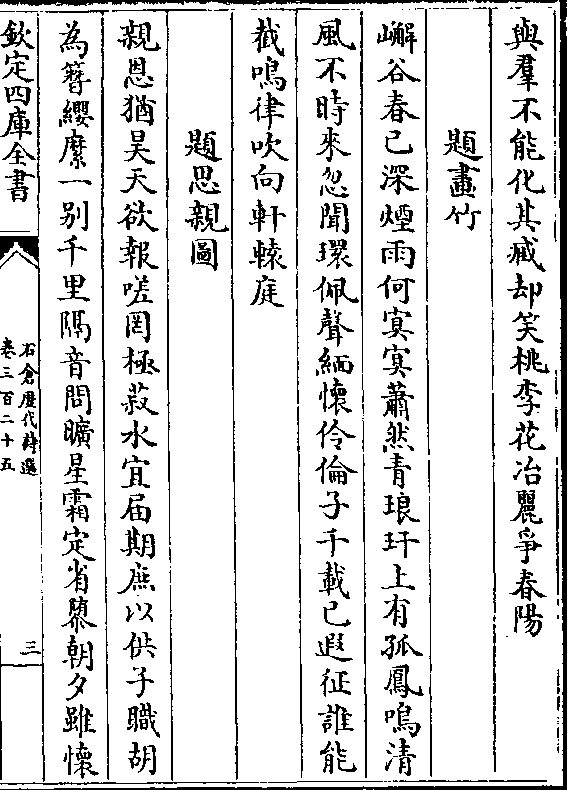 與羣不能化其臧却笑桃李花冶麗爭春陽
題畫竹
嶰谷春已深煙雨何冥冥蕭然青琅玕上有孤鳳鳴清
風不時來忽聞環佩聲緬懷伶倫子千載已遐征誰能
截鳴律吹向軒轅庭
題思親圖
親恩猶昊天欲報嗟罔極菽水宜届期庶以供子職胡
為簪纓縻一别千里隔音問曠星霜定省隳朝夕雖懷
欽定四庫全書
石倉歷代詩選
卷三百二十五
三